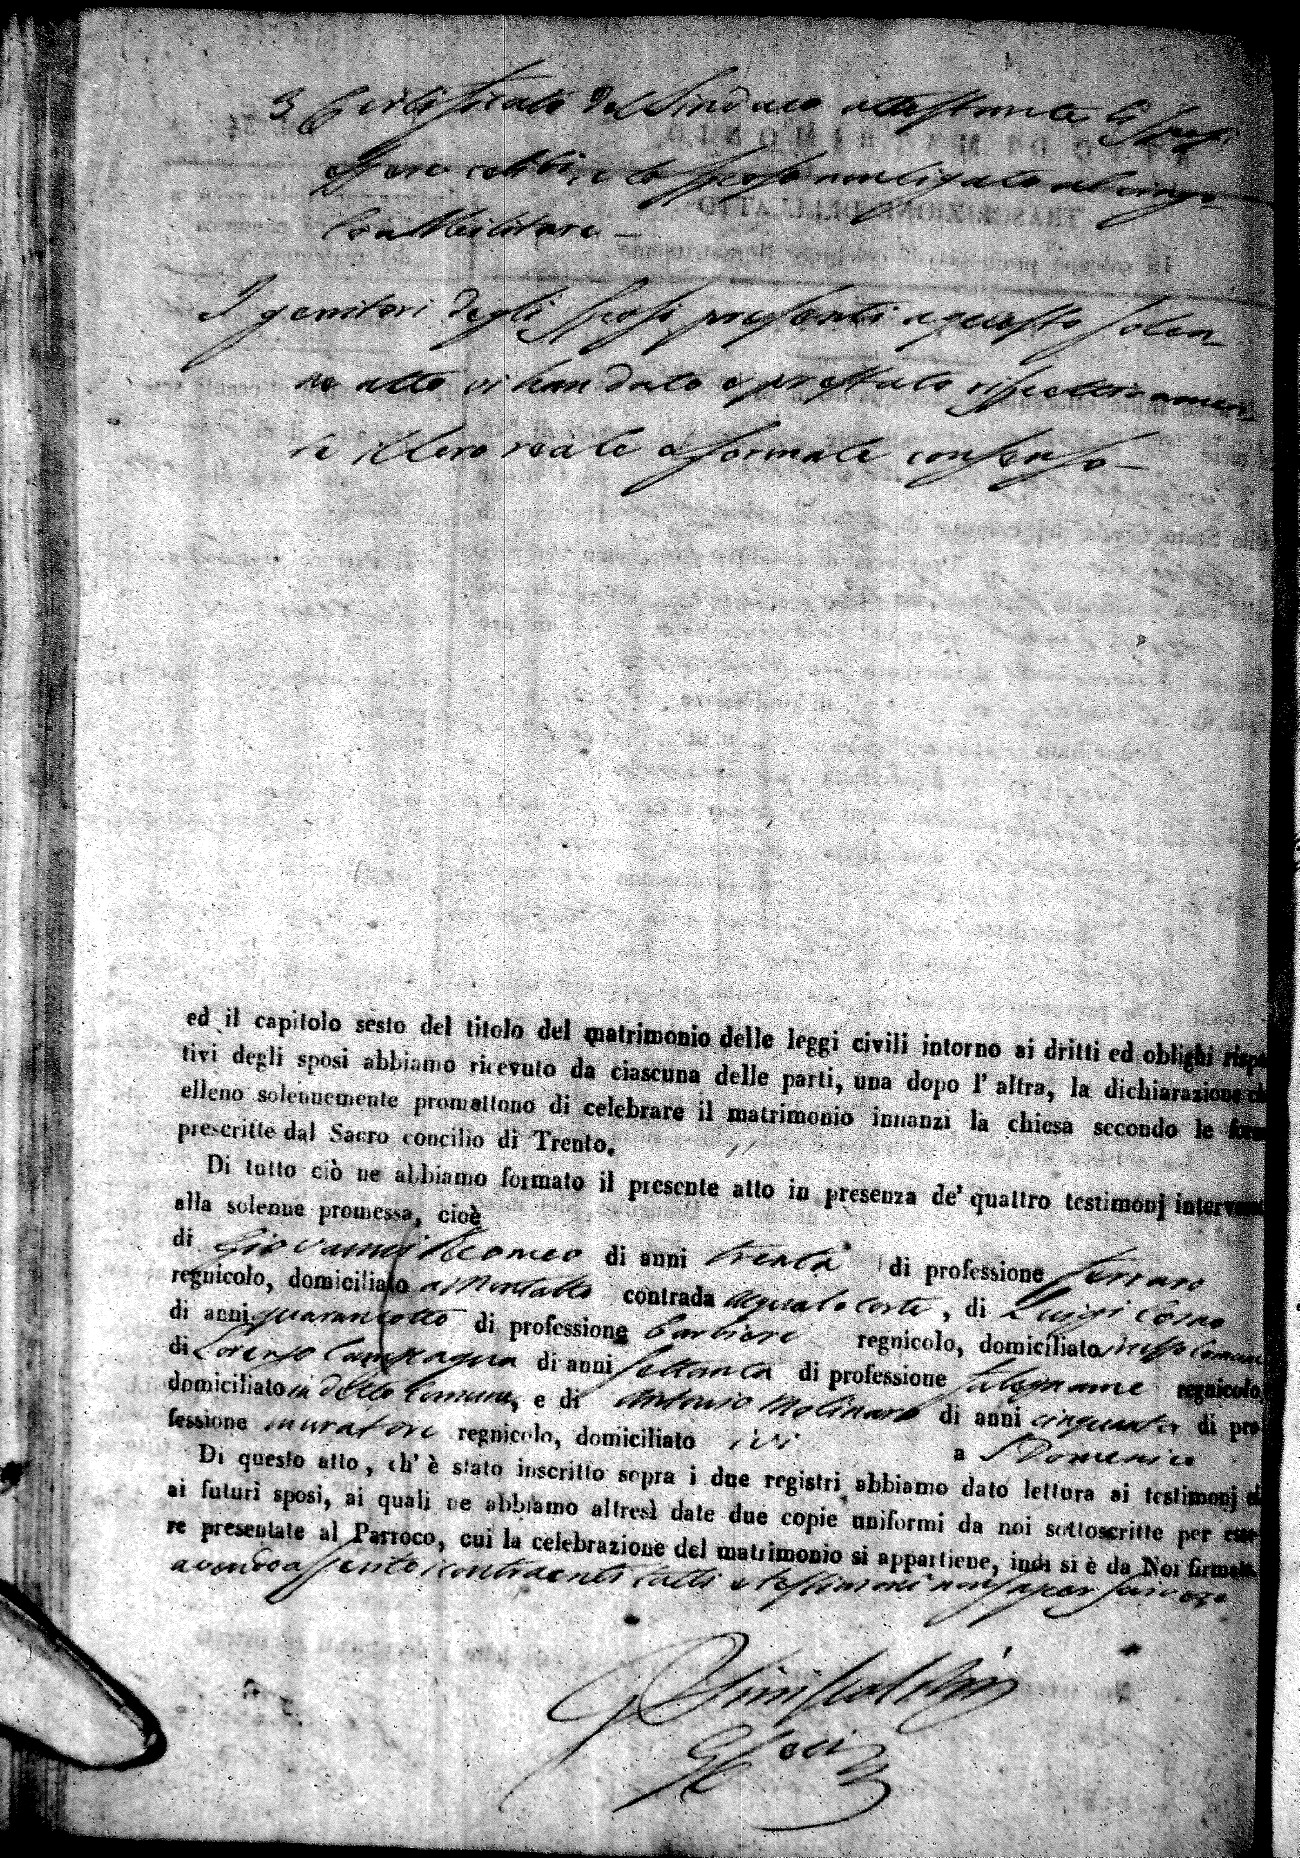 3 Certificato del Sindaco attestante gli Sposi
essere celibi, e lo sposo non ligato al vinco-
lo militare –
I genitori degli sposi presenti a questo solen-
ne atto vi han dato e prestato rispettivamen-
te il loro reale e formale consenso –
ed il capitolo sesto del titolo del matrimonio delle leggi civili intorno ai dritti ed oblighi rispe
tivi degli sposi abbiamo ricevuto da ciascuna delle parti, una dopo l' altra, la dichiarazione
elleno solennemente promettono di celebrare il matrimonio innanzi la chiesa secondo le form
prescritte dal Sacro concilio di Trento.
Di tutto ciò ne abbiamo formato il presente atto in presenza de' quattro testimonj interven
alla solenne promessa, cioè
di Giovanni Romeo di anni trenta di professione ferraro
regnicolo, domiciliato a Montalto contrada , di Luigi
di anni quarantotto di professione barbiere regnicolo, domiciliato in esso Comun
di Lorenzo Campagna di anni settanta di professione falegname regnicolo
domiciliato in detto Comune, e di Antonio Molinaro di anni cinquanta di pro-
fessione muratore regnicolo, domiciliato ivi a S Domenico
Di questo atto, ch' è stato inscritto sopra i due registri abbiamo dato lettura ai testimonj e
ai futuri sposi, ai quali ne abbiamo altresì date due copie uniformi da noi sottoscritte per esse-
re presentate al Parroco, cui la celebrazione del matrimonio si appartiene, indi si è da Noi firmato
avendo assento i contraenti tutti e testimoni non saper scrivere